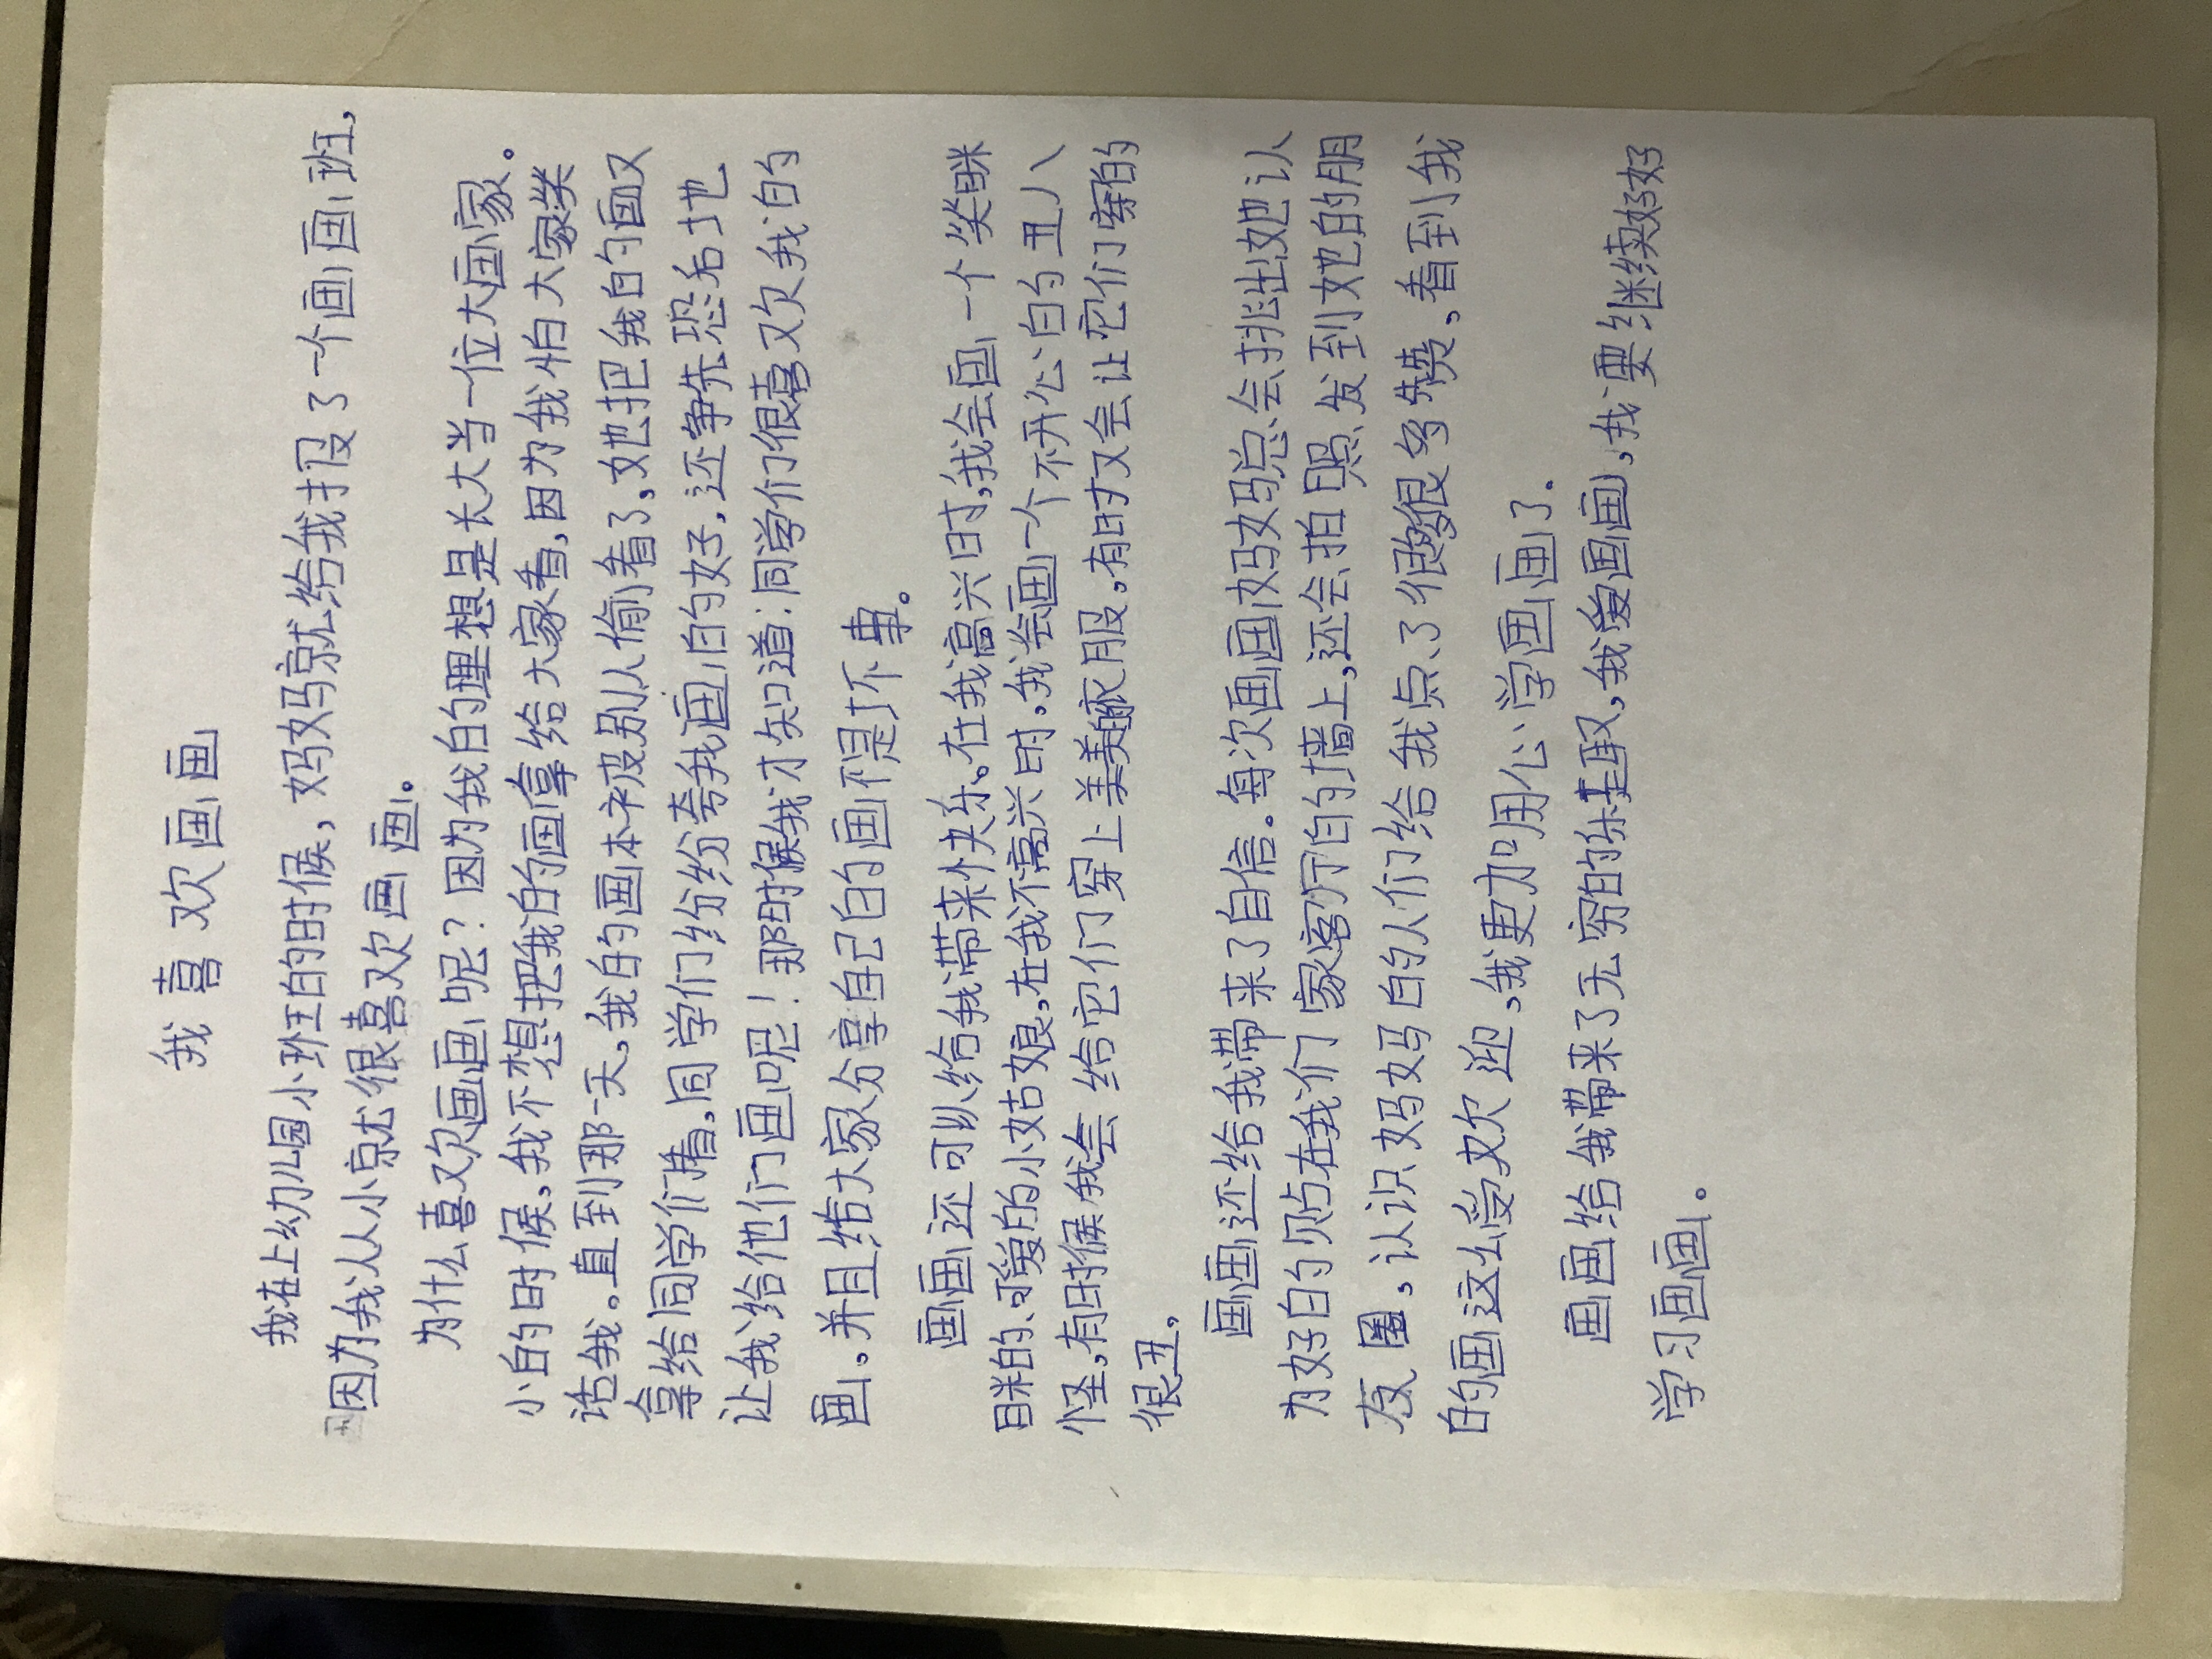 我喜欢画画
我在上幼儿园小班的时候，妈妈就给我报了一个画画班，
因为我从小就很喜欢画画。
为什么喜欢画画呢？因为我的理想是长大当一位大画家。
小的时候，我不想把我的画拿给大家看，因为我怕大家笑
话我。直到那一天，我的画本被别人偷看了，她把我的画又
拿给同学们看，同学们纷纷夸我画的好，还争先恐后地
让我给他们画呢！那时候我才知道：同学们很喜欢我的
画。并且给大家分享自己的画不是坏事。
画画还可以给我带来快乐。在我高兴时，我会画一个笑眯
眯的、可爱的小姑娘，在我不高兴时，我会画一个不开心的丑八
怪，有时候我会给它们穿上美美衣服。有时又会让它们穿的
很丑，
画画还给我带来了自信。每次画画妈妈总会挑出她认
为好的贴在我们家客厅的墙上，还会拍照发到她的朋
友圈，认识妈妈的人们给我点了很多很多赞，看到我
的画这么受欢迎，我更加用心学画画了。
画画给我带来了无穷的乐趣，我爱画画，我要继续好好
学习画画。